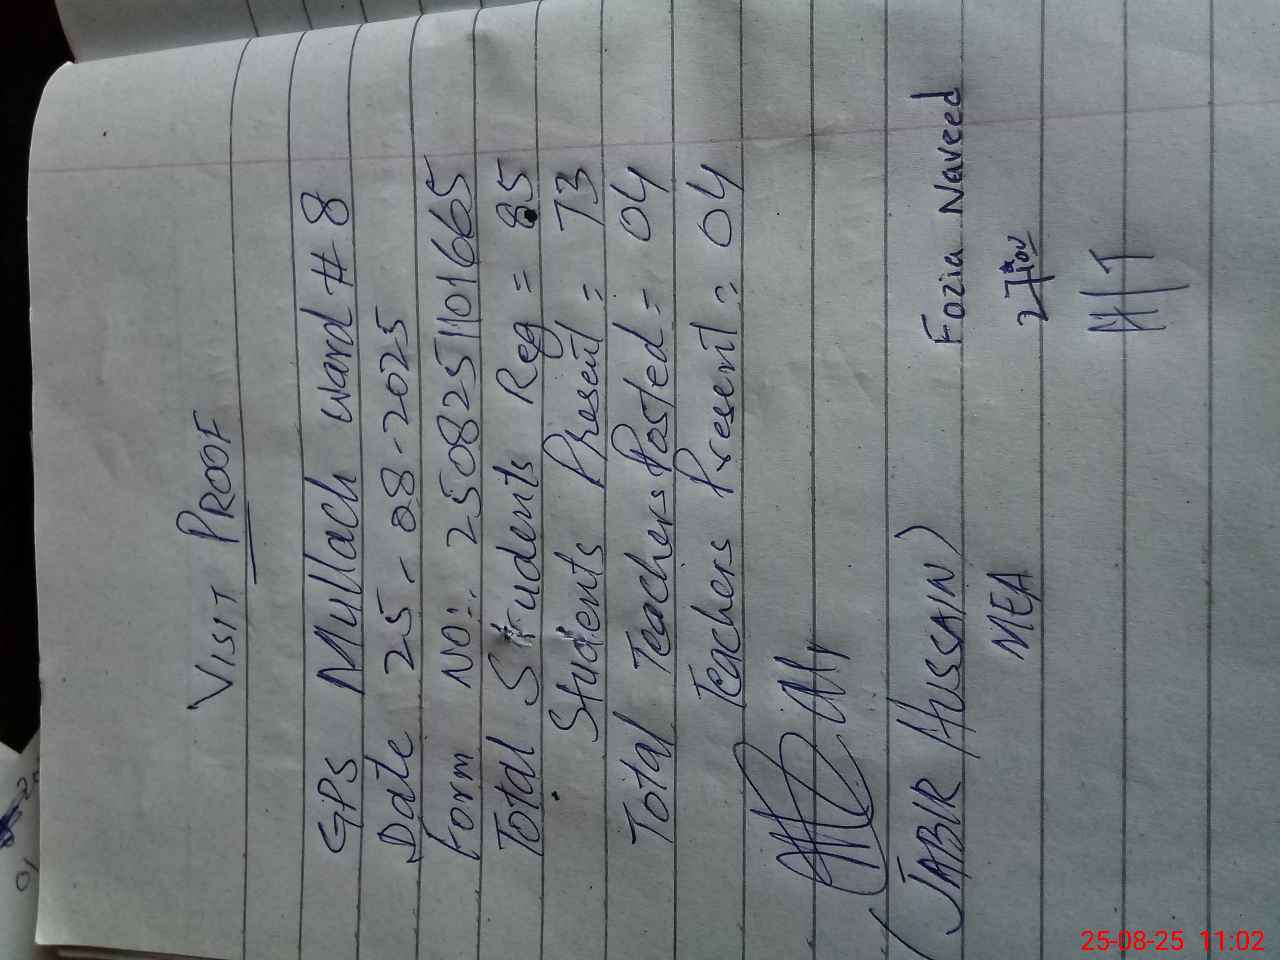 VISIT PROOF
GPS Mullach ward # 8
Date 25-08-2025
Form NO:. 2508251101665
Total Students Reg = 85
Students Present = 73
Total Teachers Posted = 04
Teachers Present = 04
(JABIR HUSSAIN)
MEA
Fozia Naveed
H/T
25-08-25 11:02